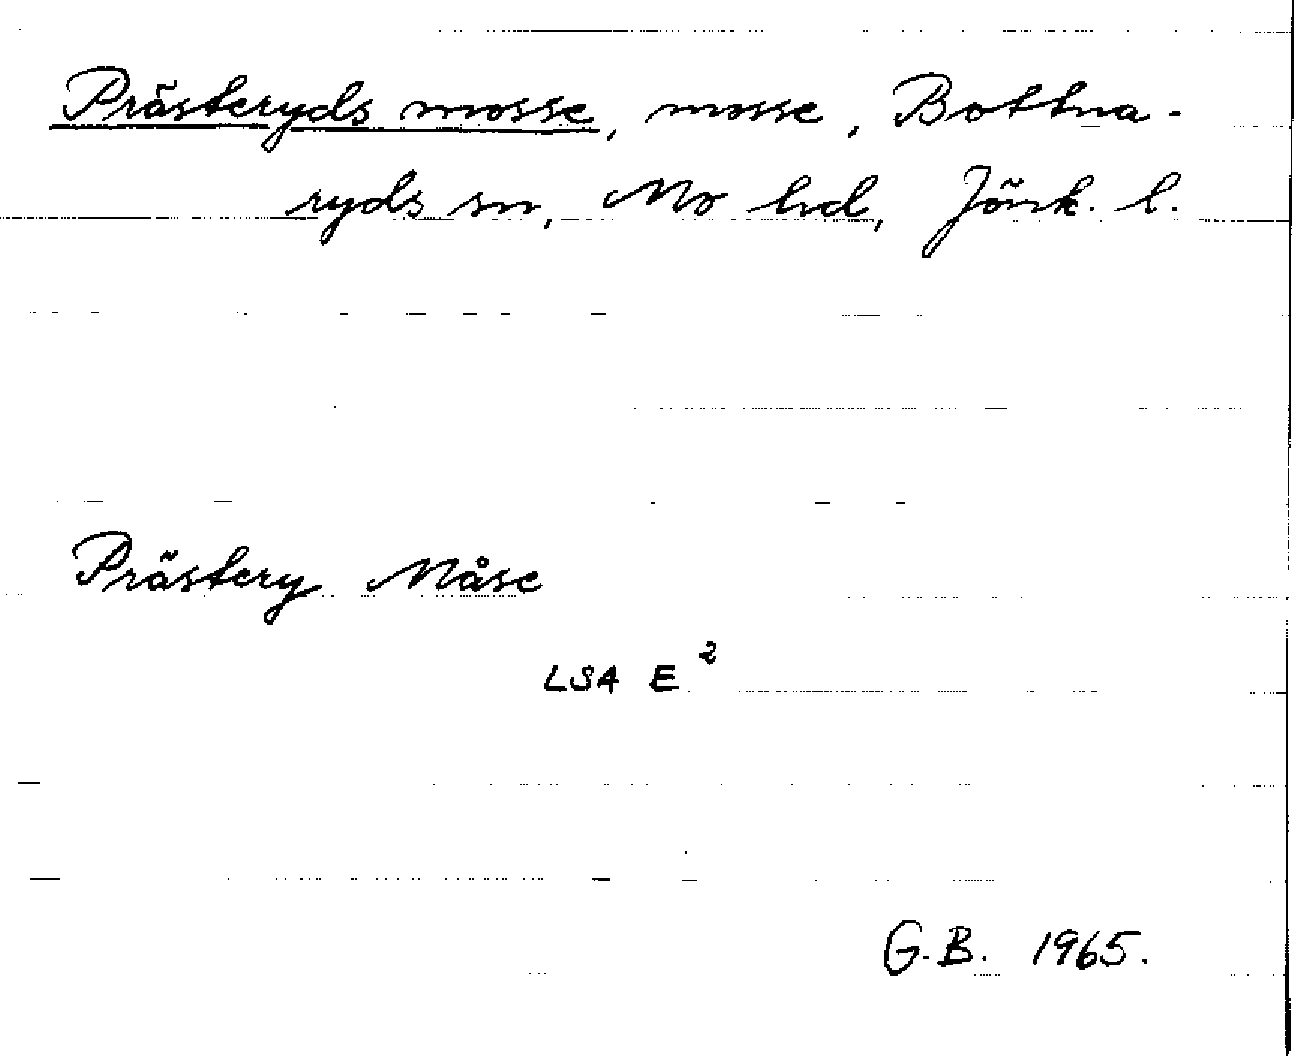 Prästeryds mosse, mosse, Bottna-
ryds sn, Mo hd, Jönk. l.
Prästery Måse
LSA E²
G.B. 1965.